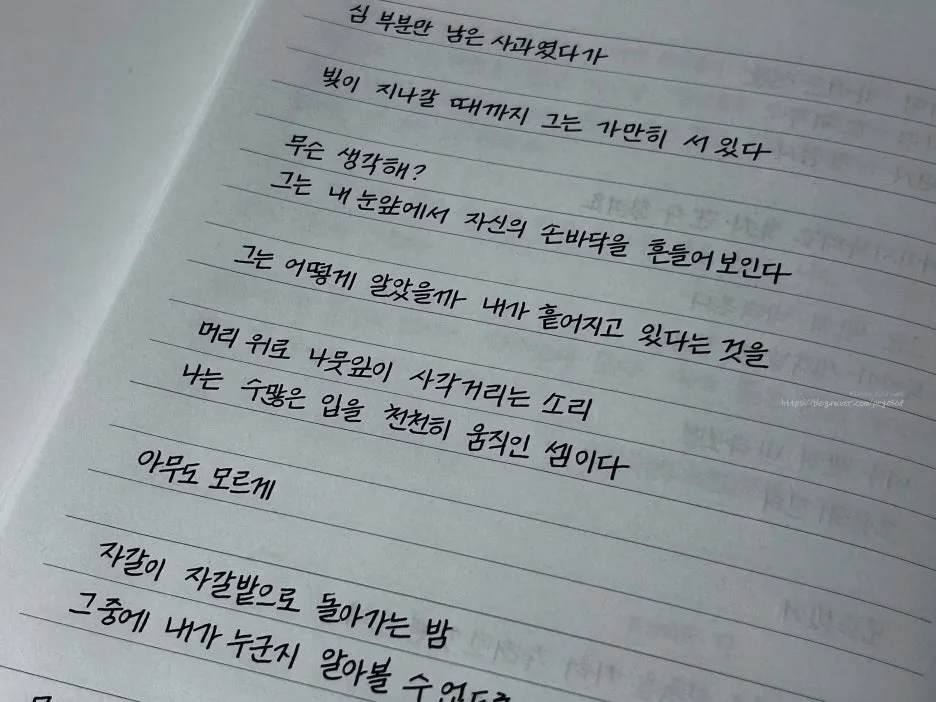 심 부분만 남은 사과였다가
빛이 지나갈 때까지 그는 가만히 서 있다
무슨 생각해?
그는 내 눈앞에서 자신의 손바닥을 흔들어 보인다
그는 어떻게 알았을까 내가 흩어지고 있다는 것을
머리 위로 나뭇잎이 사각거리는 소리
나는 수많은 입을 천천히 움직인 셈이다
아무도 모르게
자갈이 자갈밭으로 돌아가는 밤
그중에 내가 누군지 알아볼 수